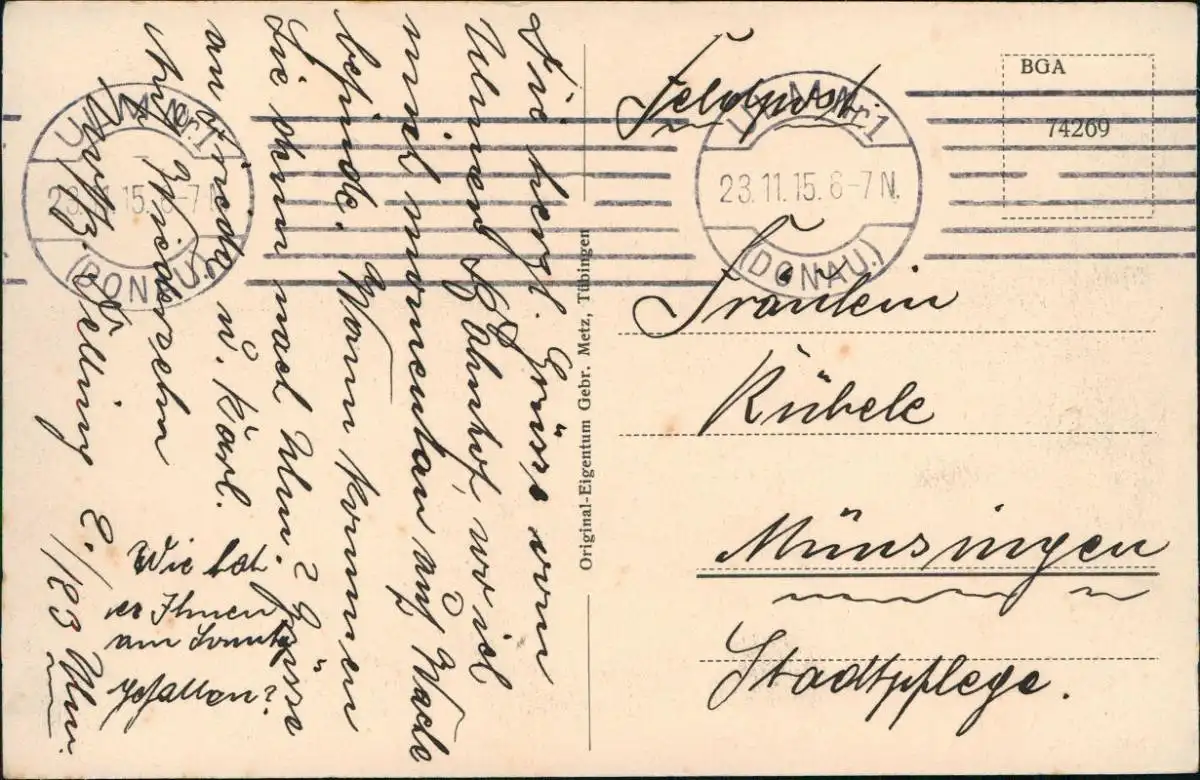 Die herzl. Grüsse vom
Ulmer Bahnhof, wo ich
mich momentan auf Wache
befinde. Wann kommen
Sie denn nach Ulm? Grüsse
an Frieda u. Karl.
Auf Wiedersehn
Gefz. Delling E./123 Ulm.
Wie hat
es Ihnen
am Sonntg
gefallen?
Original-Eigentum Gebr. Metz, Tübingen
Feldpost
BGA
74269
ULM Nr 1
23.11.15. 6-7 N.
(DONAU.)
ULM Nr 1
23.11.15. 6-7 N.
(DONAU.)
Fräulein
Kübele
Münsingen
Stadtpflege.